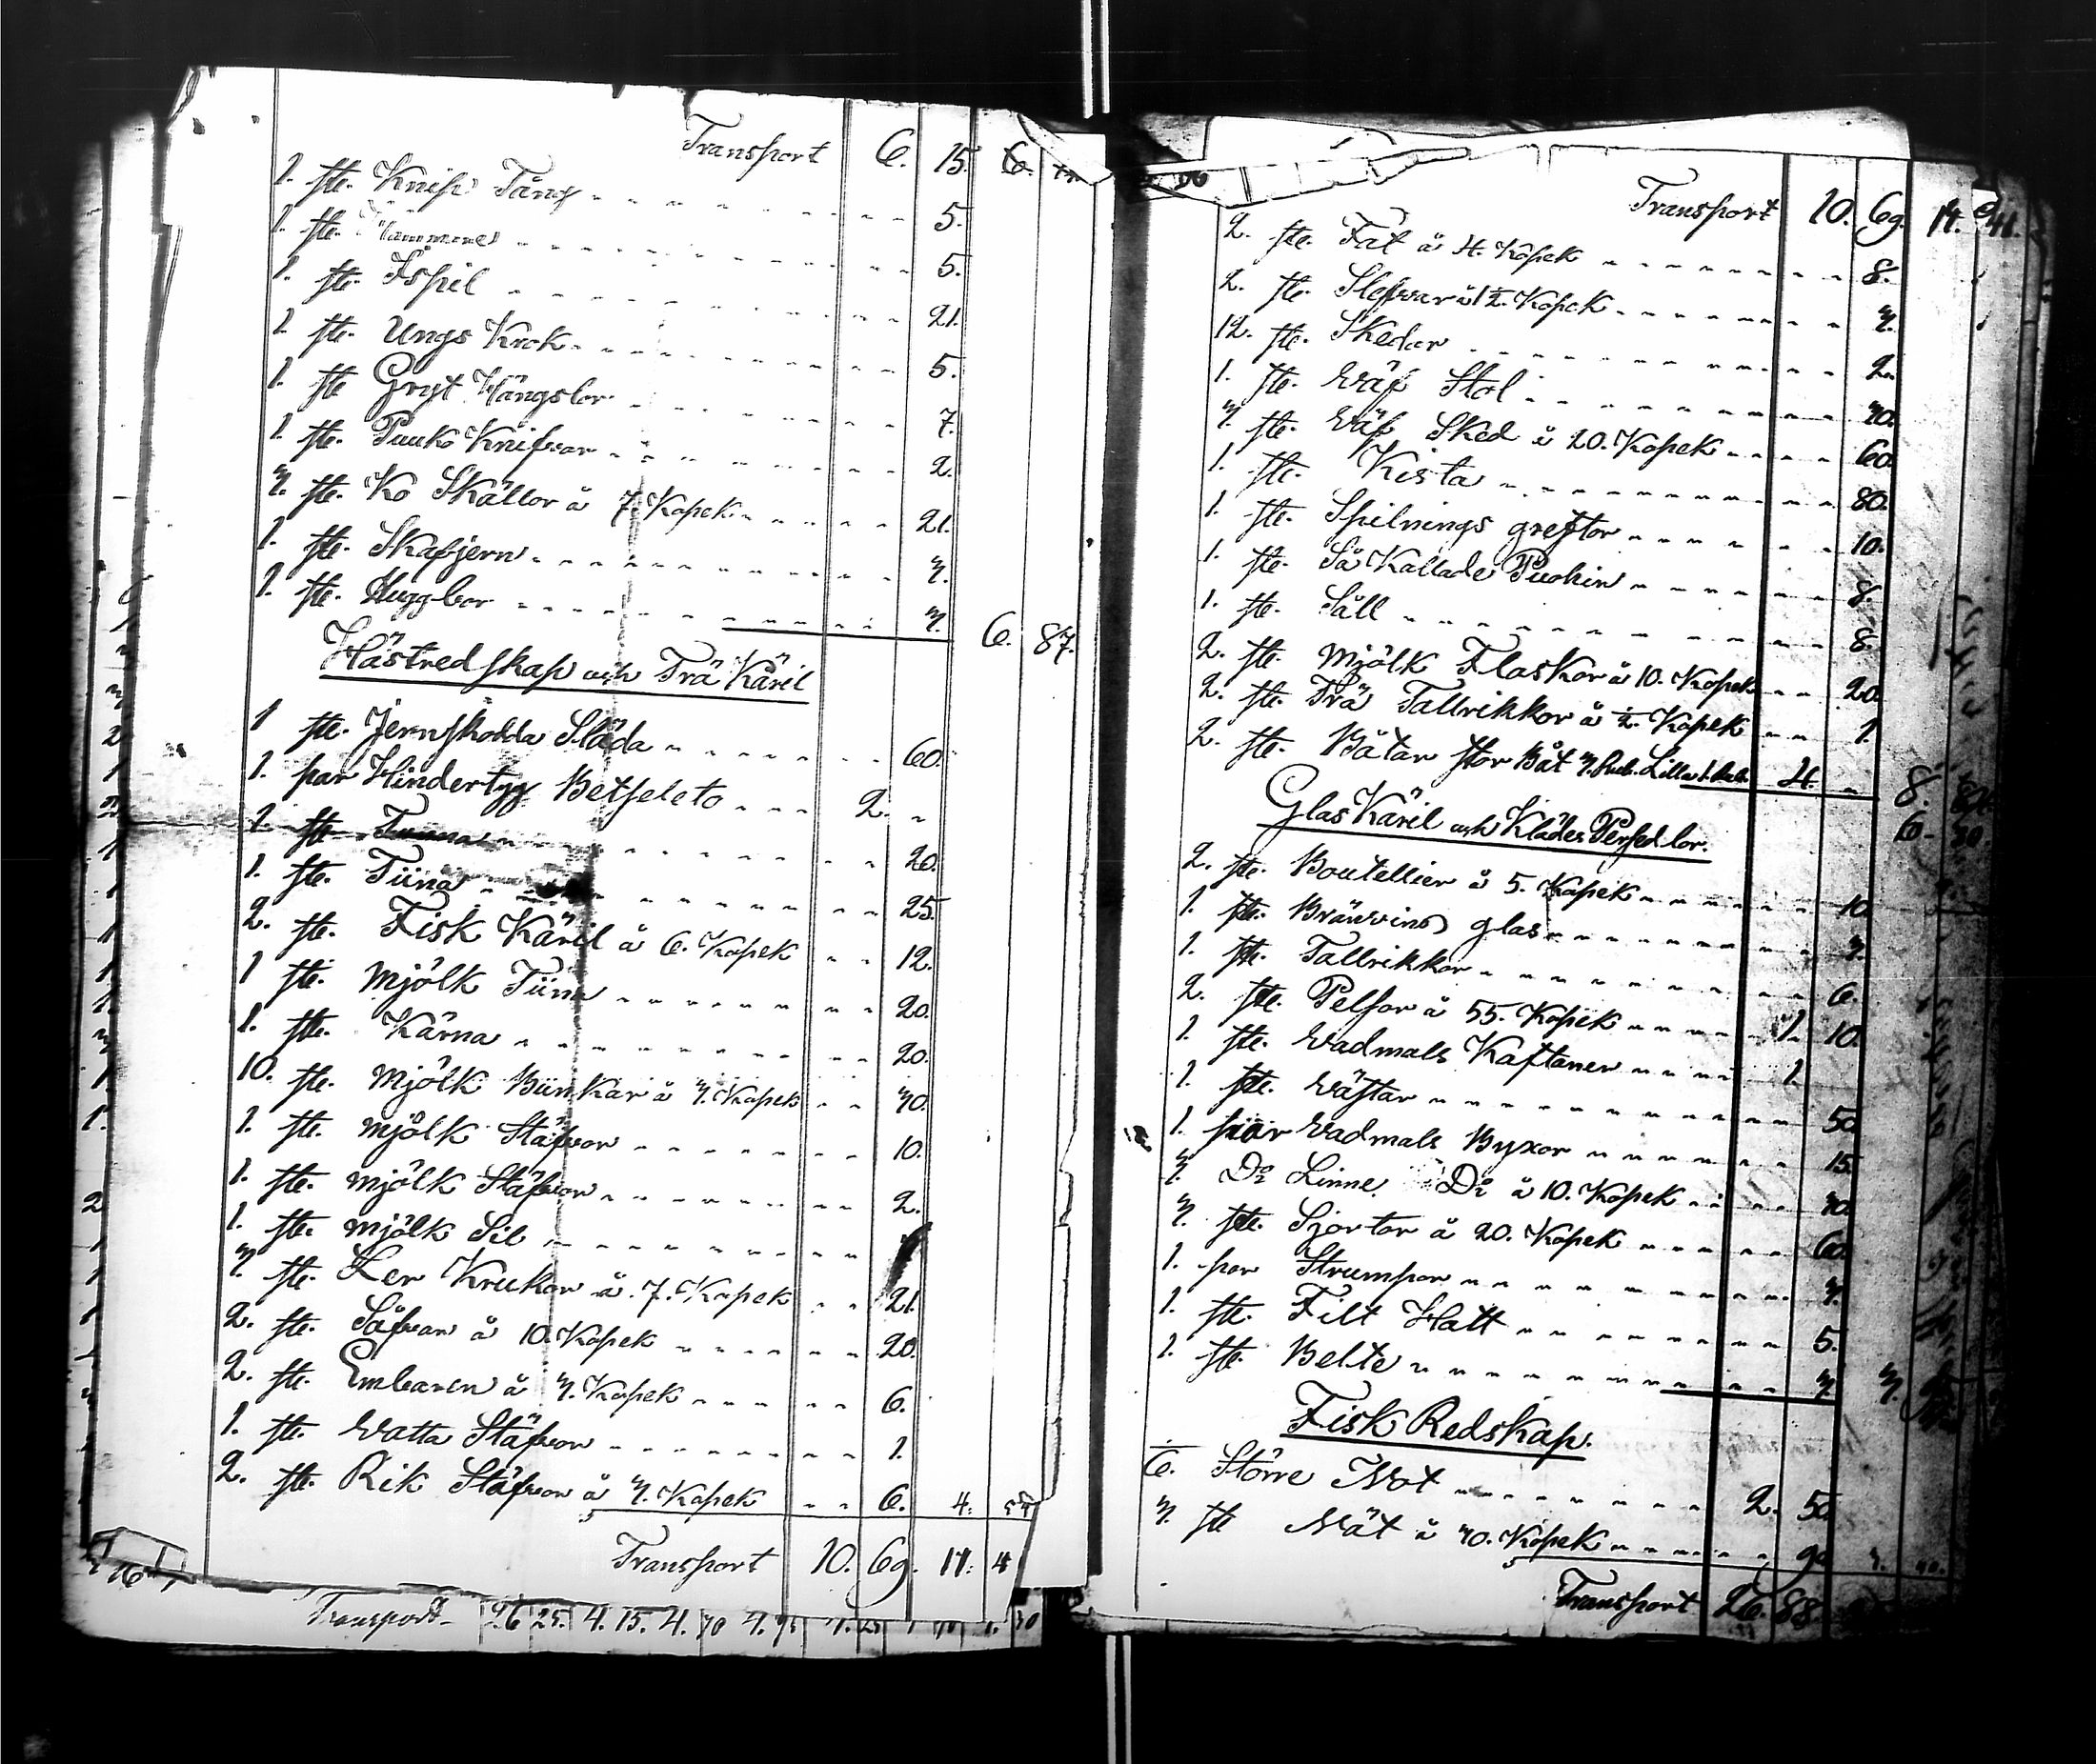 Transport 6. 15. 6.
1. ste. Knip Tång 5.
1. ste. Hammare 5.
1. ste. Ispil 21.
1. ste. Ungs Krok 5.
1. ste Gryt Hängslor 7.
1. ste. Puuko Knifvar 2.
3. ste. Ko Skällor å 7. Kopek 21.
1. ste. Skafjern 3.
1. ste. Huggbor 3. 6. 87.
Hästredskap och Trä Käril
1 ste. Jernskodda Släda 60.
1. par Hindertyg Betseleto 2. -
1. ste. Tunna 20.
1. ste. Tiina 25.
2. ste. Fisk Käril å 6. Kopek 12.
1 ste. Mjölk Tiina 20.
1. ste. Kärna 20.
10. ste. Mjölk Bunkar å 3. Kopek 30.
1. ste. Mjölk Stäfvor 10.
1. ste. Mjölk Stäfvor 2.
1. ste. Mjölk Sil
3. ste. Ler Krukor å 7. Kopek 21.
2. ste. Såfvar å 10. Kopek 20.
2. ste. Embaren å 3. Kopek 6.
1. ste. Watta Stäfvor 1.
2. ste. Rik Stäfvor å 3. Kopek 6. 4.
Transport 10. 69. 11. 4
Transport 26 25. 4. 15. 4. 30 4.
Transport 10. 69. 41.
2. ste. Fat å 4. Kopek 8.
2. ste. Slefvar å 1½. Kopek 3.
12. ste. Skedar 2.
1. ste. Wäf Stol 30.
3. ste. Wäf Sked å 20. Kopek 60.
1. ste. Kista 80.
1. ste. Spilnings greftor 10.
1. ste. Så Kallade Puohin 8.
1. ste. Såll 8.
2. ste. Mjölk Flaskor å 10. Kopek 20.
2. ste. Trä Tallrikkor å ½. Kopek 1.
2. ste. Båtar stor Båt 3. Rub. Lilla 1. Rub. 4. - 8.
Glas Käril och Klädes Persedlor. 6. 30
2. ste. Boutellier å 5. Kopek 10
1. ste. Bränvins glas 3.
1. ste. Tallrikkor 6.
2. ste. Pelsor å 55. Kopek 1. 10.
1. ste. Wadmals Kaftaner 1.
1. ste. Wästar 50
1. par Wadmals Byxor 15.
3. Do Linne Do å 10. Kopek 30.
3. ste. Sjortor å 20. Kopek 60
1. par Strumpor 3.
1. ste. Filt Hatt 5.
1. ste. Belte 3. 3.
Fisk Redskap.
Större Not 2. 50
3. ste Nät å 30. Kopek 90
Transport 26. 88